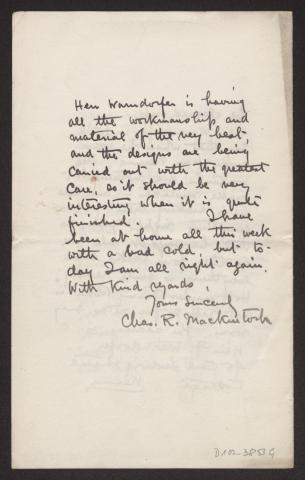 Herr Warndorfer is having
all the workmanship and
material of the very best
and the designs are being
carried out with the greatest
care, as it should be very
interesting when it is quite
finished. I have
been at home all this week
with a bad cold, but to-
day I am all right again.
With Kind regards,
Yours Sincerely
Chas. R. Mackintosh
D102-3853 G